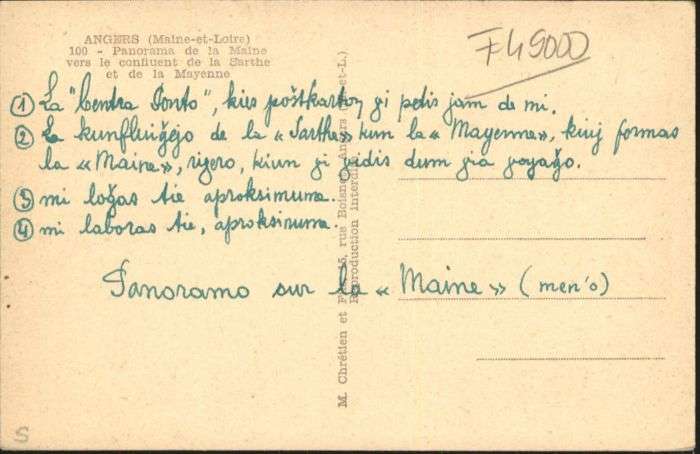 ANGERS (Maine-et-Loire)
100 - Panorama de la Maine
vers le confluent de la Sarthe
et de la Mayenne
F49000
① La "Centra Ponto", kies poŝtkarton gi petis jam de mi.
② La kunfluiĝejo de la «Sarthe» kun la «Mayenne», kiuj formas
la «Maine», rigero, kiun gi vidis dum gia vojaĝo.
③ mi loĝas tie aproksimume.
④ mi laboras tie, aproksimume.
Panoramo sur la «Maine» (men'o)
M. Chrétien et Fils, 15, rue Boisnet, Angers (M.-et-L.)
Reproduction interdite
S